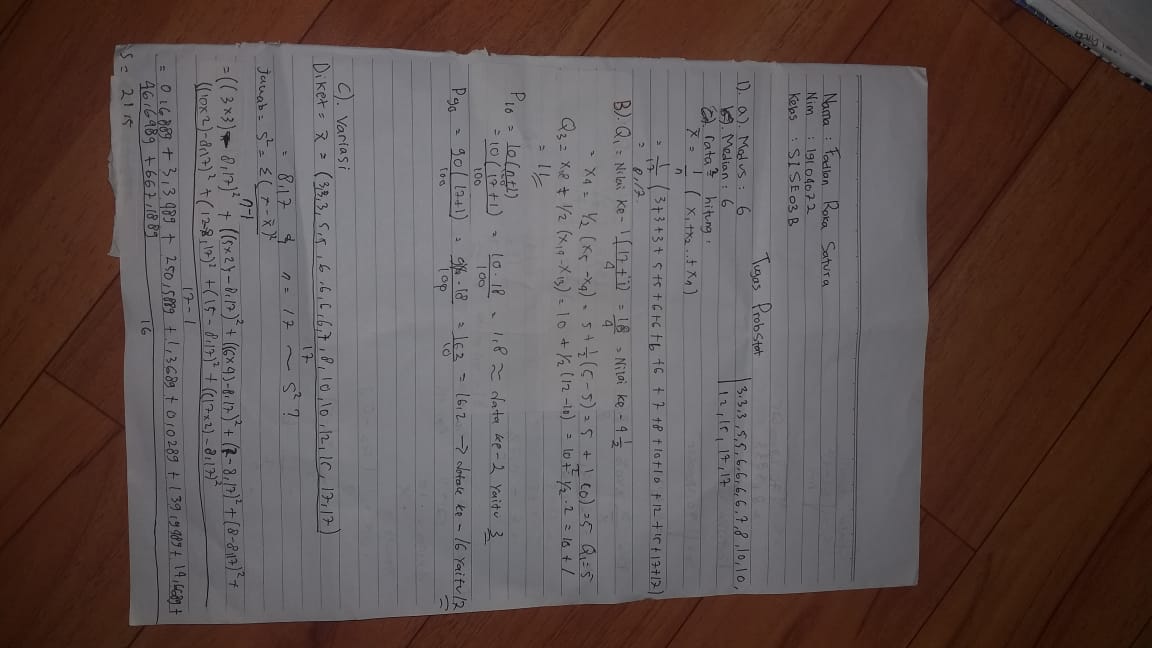 Nama : Fadlan Raka Satura
Nim : 19104072
Kelas : S1SE03B
Tugas Probstat
1). a) Modus : 6
3,3,3,5,5,6,6,6,6,7,8,10,10,
12,15,17,17
b). Median : 6
c). rata² hitung :
x̄ = 1/n (x₁+x₂..+xₙ)
= 1/17 (3+3+3+5+5+6+6+6+6+7+8+10+10+12+15+17+17)
= 8,17
B). Q₁ = Nilai ke - 1(17+1)/4 = 18/4 = Nilai ke - 4 1/2
= x₄ = 1/2 (x₅ - x₄) = 5 + 1/2 (5-5) = 5 + 1 (0) = 5 Q₁ = 5
Q₃ = x₁₃ + 1/2 (x₁₄-x₁₃) = 10 + 1/2 (12-10) = 10 + 1/2 . 2 = 10 + 1
= 11
P₁₀ = 10(n+1)/100
= 10(17+1)/100 = 10.18/100 = 1,8 ≈ data ke-2 yaitu 3
P₉₀ = 90(17+1)/100 = 90.18/100 = 162/10 = 16,2 → data ke - 16 yaitu 17
C). Variasi
Diket = x̄ = (3,3,3,5,5,6,6,6,6,7,8,10,10,12,15,17,17)
17
= 8,17 & n = 17 ~ S² ?
Jawab = S² = Σ(x-x̄)²
n-1
= ((3x3) - 8,17)² + ((5x2)-8,17)² + ((6x4)-8,17)² + (7-8,17)² + (8-8,17)² +
((10x2)-8,17)² + (12-8,17)² + (15-8,17)² + ((17x2)-8,17)²
17-1
= 0,6889 + 3,3489 + 250,5889 + 1,3689 + 0,0289 + 139,9489 + 14,6689 +
46,6489 + 667,1889
16
S = 21,15